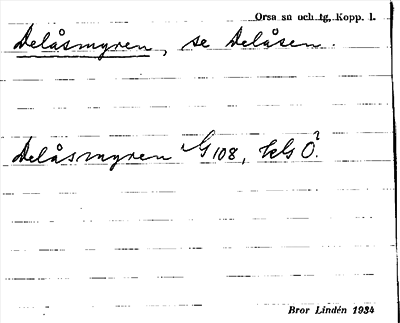 Orsa sn och tg, Kopp. l.
Delåsmyren, se Delåsen.
Delåsmyren G 108, kls Ö?
Bror Lindén 1934